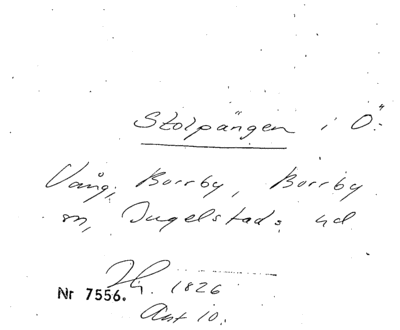 Stolpängen i Ö:
Vång, Borrby, Borrby
sn, Ingelstads hd
1826
Nr 7556.
Akt 10.